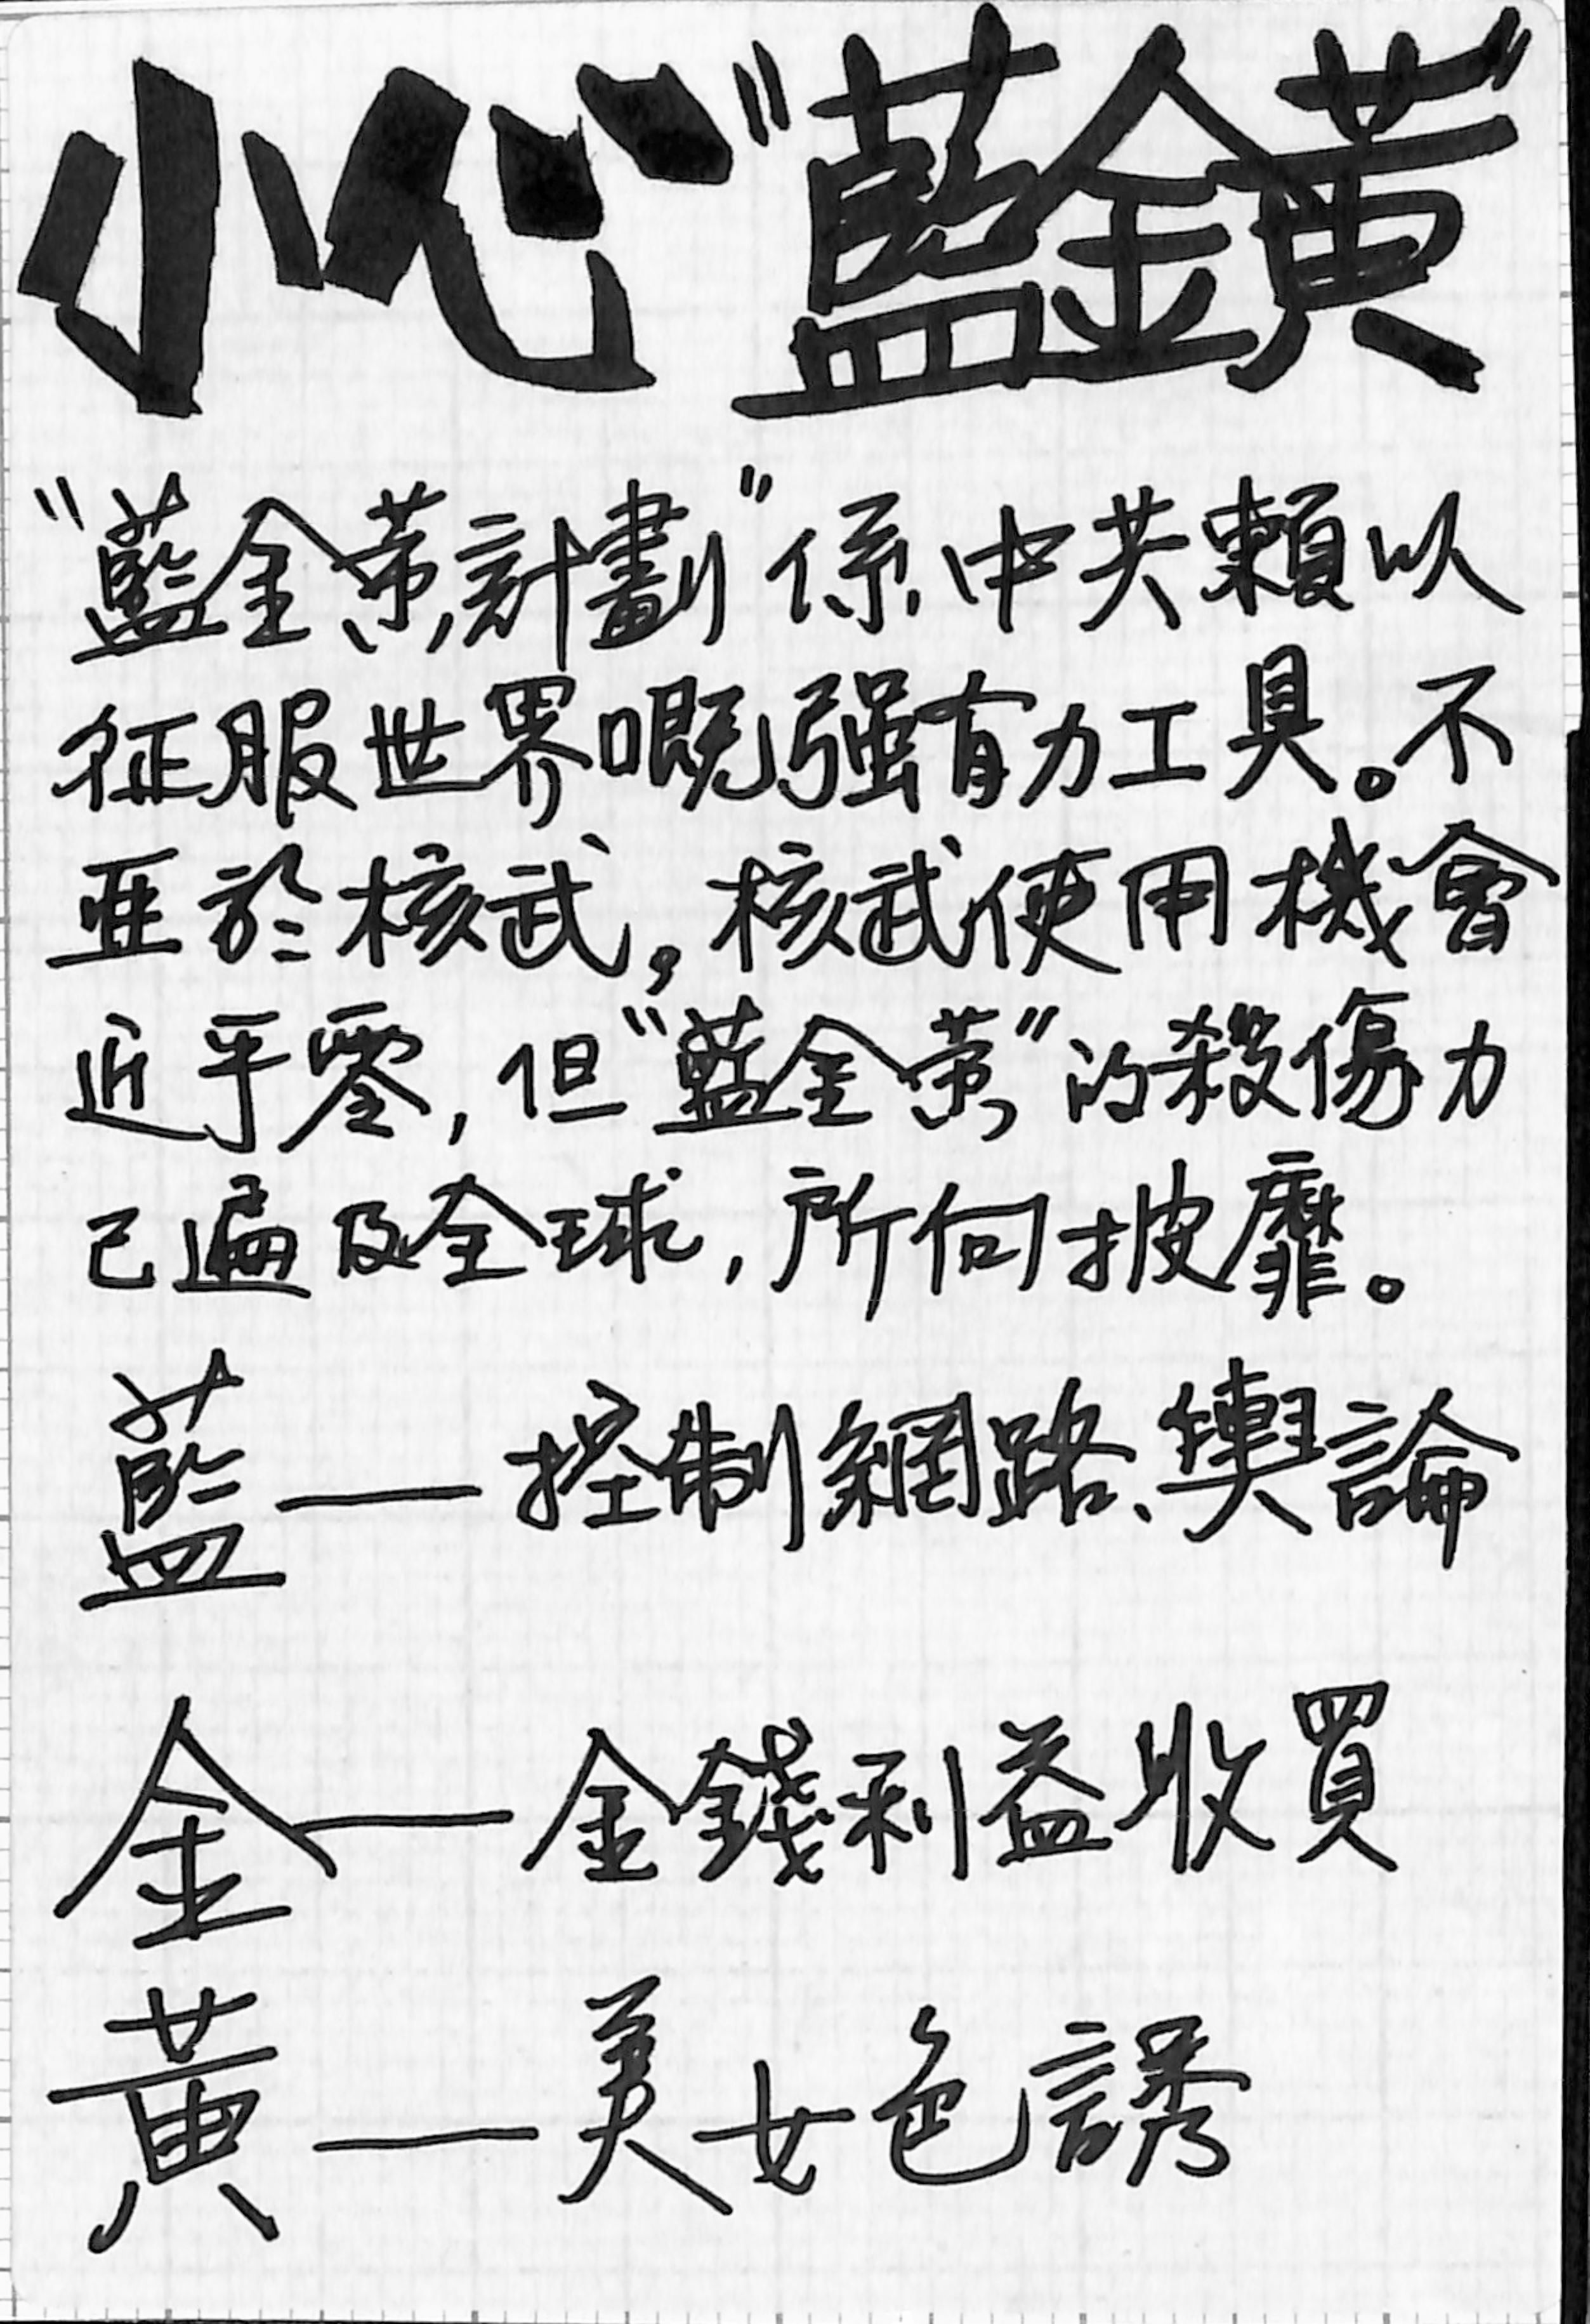 小心“藍金黃”
“藍金黃計劃”係中共賴以
征服世界嘅强有力工具。不
亚於核武,核武使用機會
近乎零,但“藍金黃”的殺傷力
己遍及全球,所向披靡。
藍——控制網路、輿論
金——金錢利益收買
黃——美女色誘